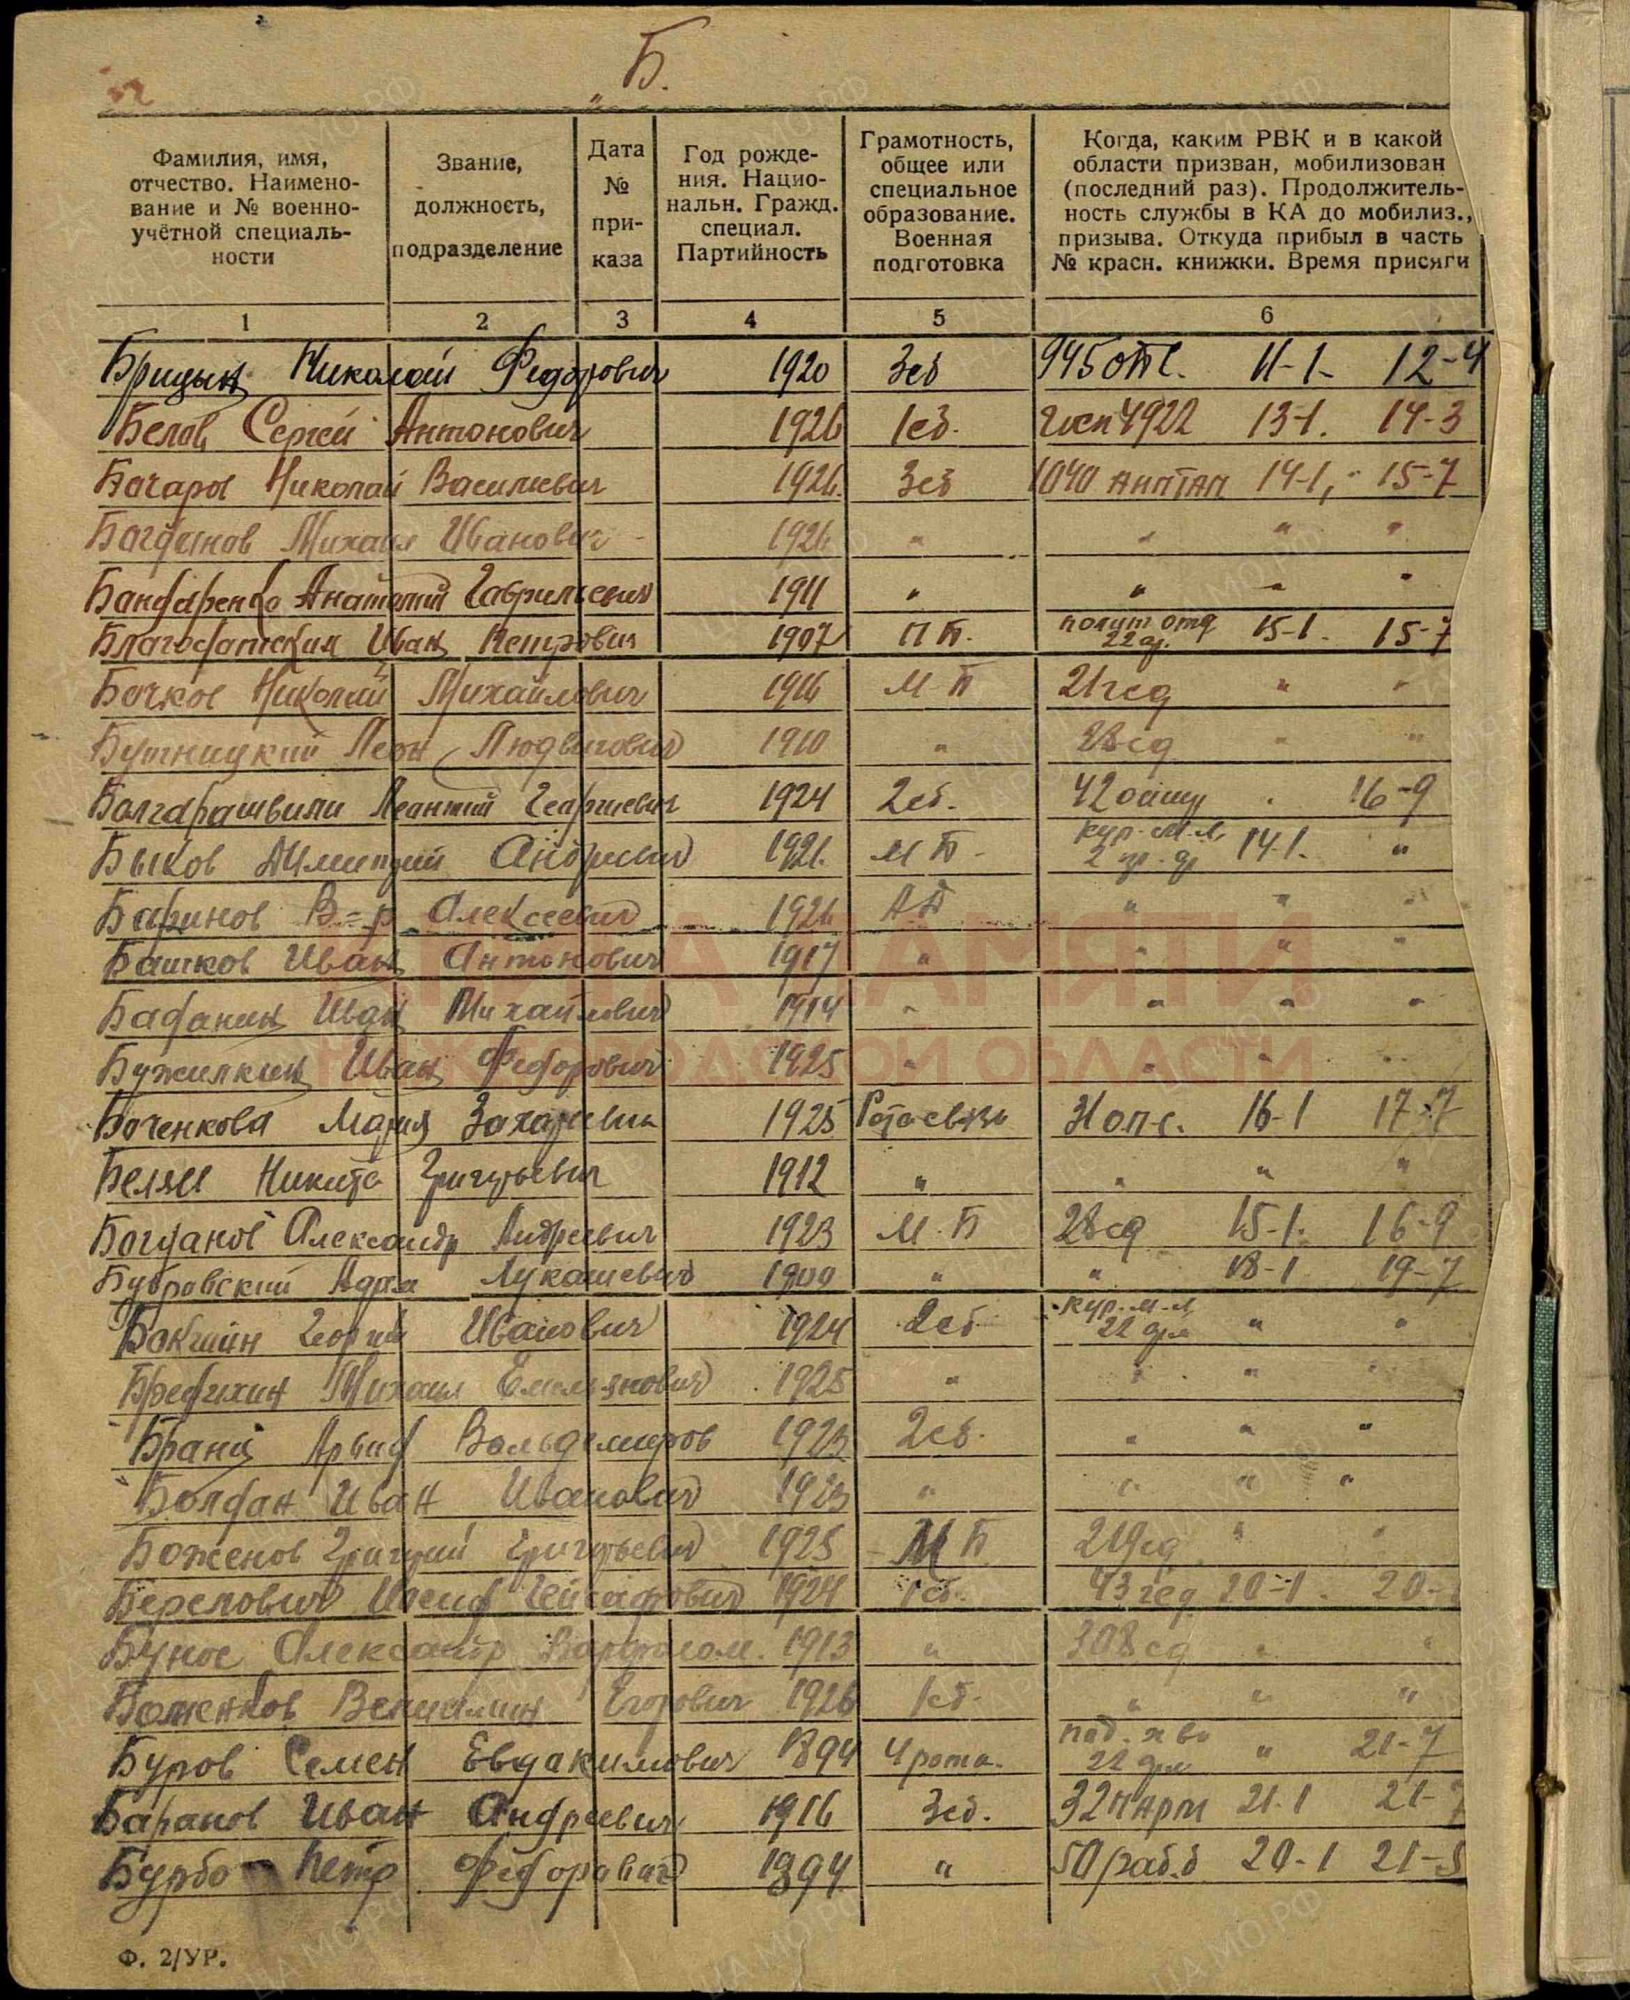 „Б.
Фамилия, имя,
отчество. Наимено-
вание и № военно-
учётной специаль-
ности
Звание,
должность,
подразделение
Дата
№
при-
каза
Год рожде-
ния. Нацио-
нальн. Гражд.
специал.
Партийность
Грамотность,
общее или
специальное
образование.
Военная
подготовка
Когда, каким РВК и в какой
области призван, мобилизован
(последний раз). Продолжитель-
ность службы в КА до мобилиз.,
призыва. Откуда прибыл в часть
№ красн. книжки. Время присяги
1 2 3 4 5 6
Брицын Николай Федорович 1920 3сб 945 11-1- 12-4
Белов Сергей Антонович 1926 1сб. 4922 13-1. 14-3
Бочаров Николай Василиевич 1926. 3сб 1040 14-1, 15-7
Богданов Михаил Иванович 1926 " " " "
Бандаренко Анатолий Гаврильевич 1911 " " " "
Иван Петрович 1907 ПБ. полит отд 22 15-1. 15-7
Бочков Николай Михайлович 1916 М-Б 21гсд " "
Леон Людвигович 1910 " 28сд " "
Болгарашвили Леантий Геаргиевич 1924 2сб. 42 16-9
Быков Андриевич 1926 М Б- кур. м.л. 14-1. "
Баринов В-р Алексеевич 1926 АБ " " "
Башков Иван Антонович 1917 " " " "
Иван Михайлович 1914 " " " "
Бужилкин Иван Федорович 1925 " " " "
Боченкова Мария Захаревна 1925 Рота связи 31 опс. 16-1 17-7
Беляев Никита Григорьевич 1912 " " " "
Богданов Александр Андреевич 1923 М-Б 28сд 15-1. 16-9
Адам Лукашевич 1909 " " 18-1 19-7
Иванович 1924 2сб кур. м-л " "
Бредихин Михаил Емельянович 1925 " " " "
Бранц Арвид Вольдемиров 1923 2сб. " " "
Болдан Иван Иванович 1923 " " " "
Боженов Григорий Григорьевич 1925 М Б 219сд " "
Иосиф 1924 1сб. 43 гсд 20-1. 20-
Александр Варфолом. 1913 " 308сд " "
Вениамин Егорович 1926 1сб. " " "
Буров Семен Евдакимович 1894 4 рота. 22 " 21-7
Баранов Иван Андреевич 1916 3сб. 32 21-1 21-7
Петр Федорович 1894 " 50 раб.б 20-1 21-
Ф. 2/УР.
КНИГА ПАМЯТИ
НИЖЕГОРОДСКОЙ ОБЛАСТИ